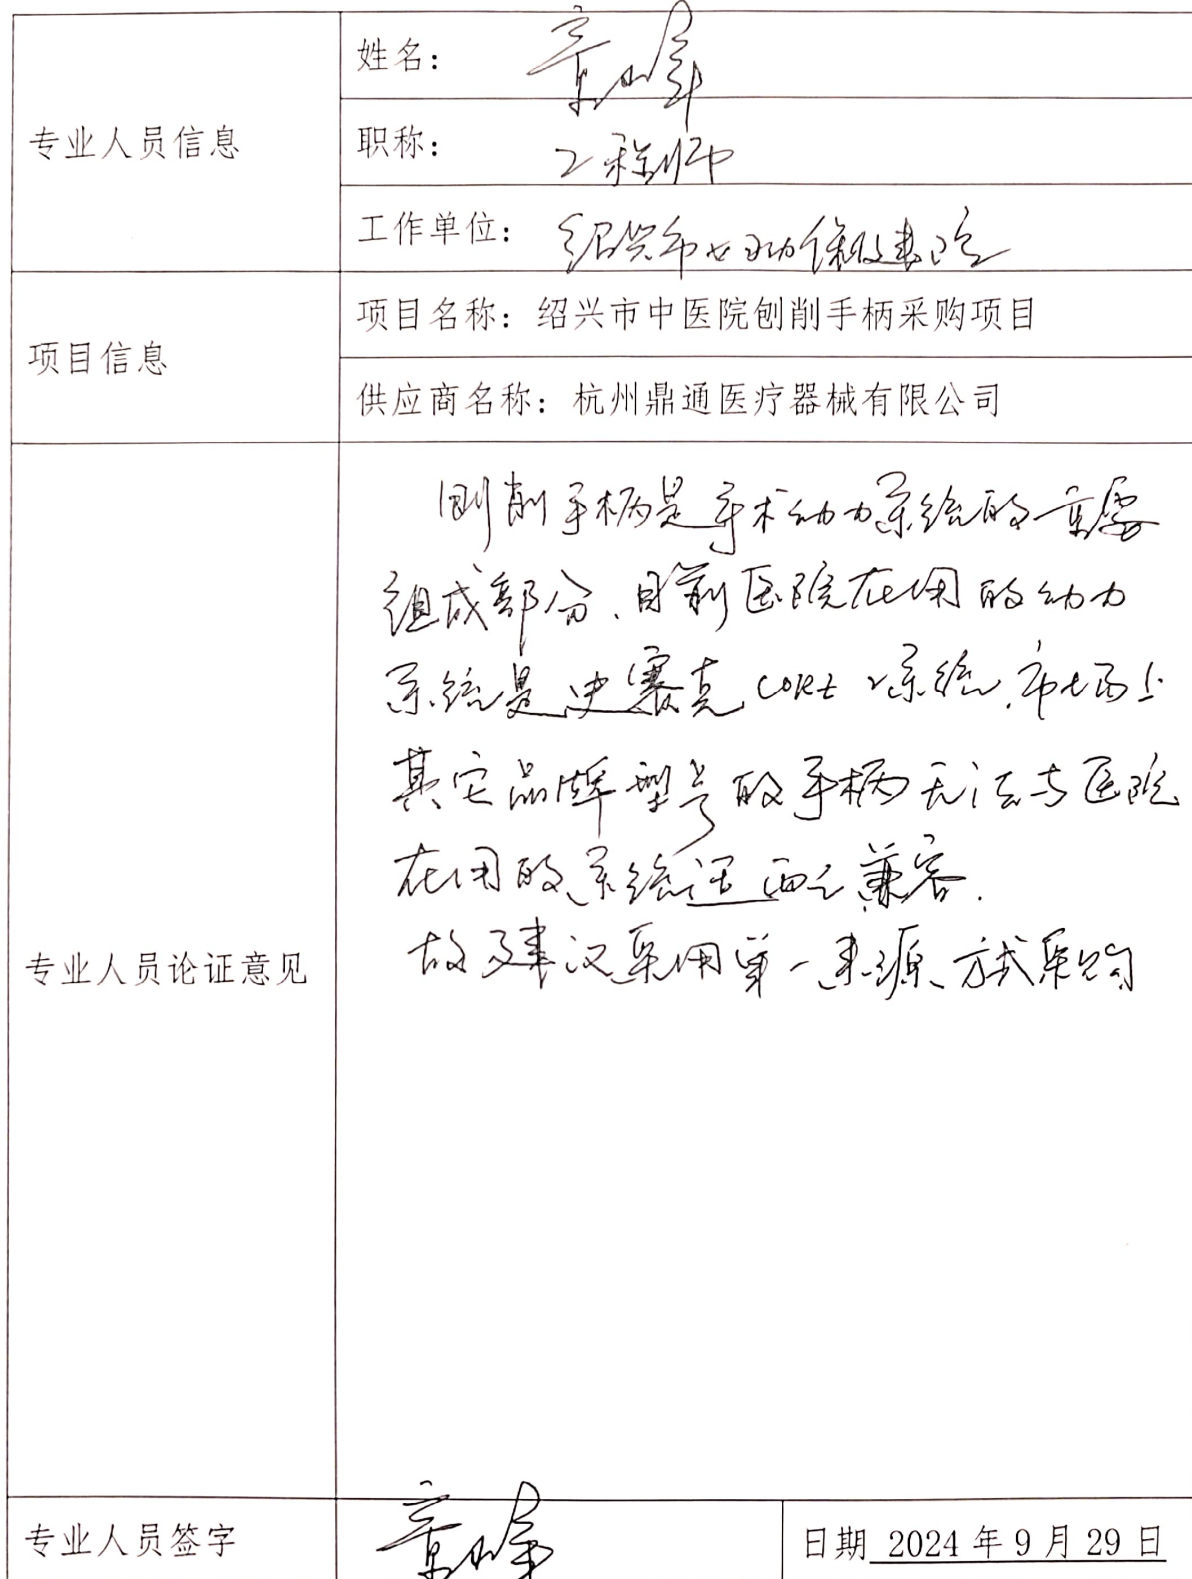 专业人员信息
姓名：
职称：工程师
工作单位：绍兴市妇幼保健院
项目信息
项目名称：绍兴市中医院刨削手柄采购项目
供应商名称：杭州鼎通医疗器械有限公司
专业人员论证意见
刨削手柄是手术动力系统的重要
组成部分、目前医院在用的动力
系统是史赛克CORE 2系统，市场上
其它品牌型号的手柄无法与医院
在用的系统适配兼容.
故建议采用单一来源方式采购
专业人员签字
日期 2024 年 9 月 29 日